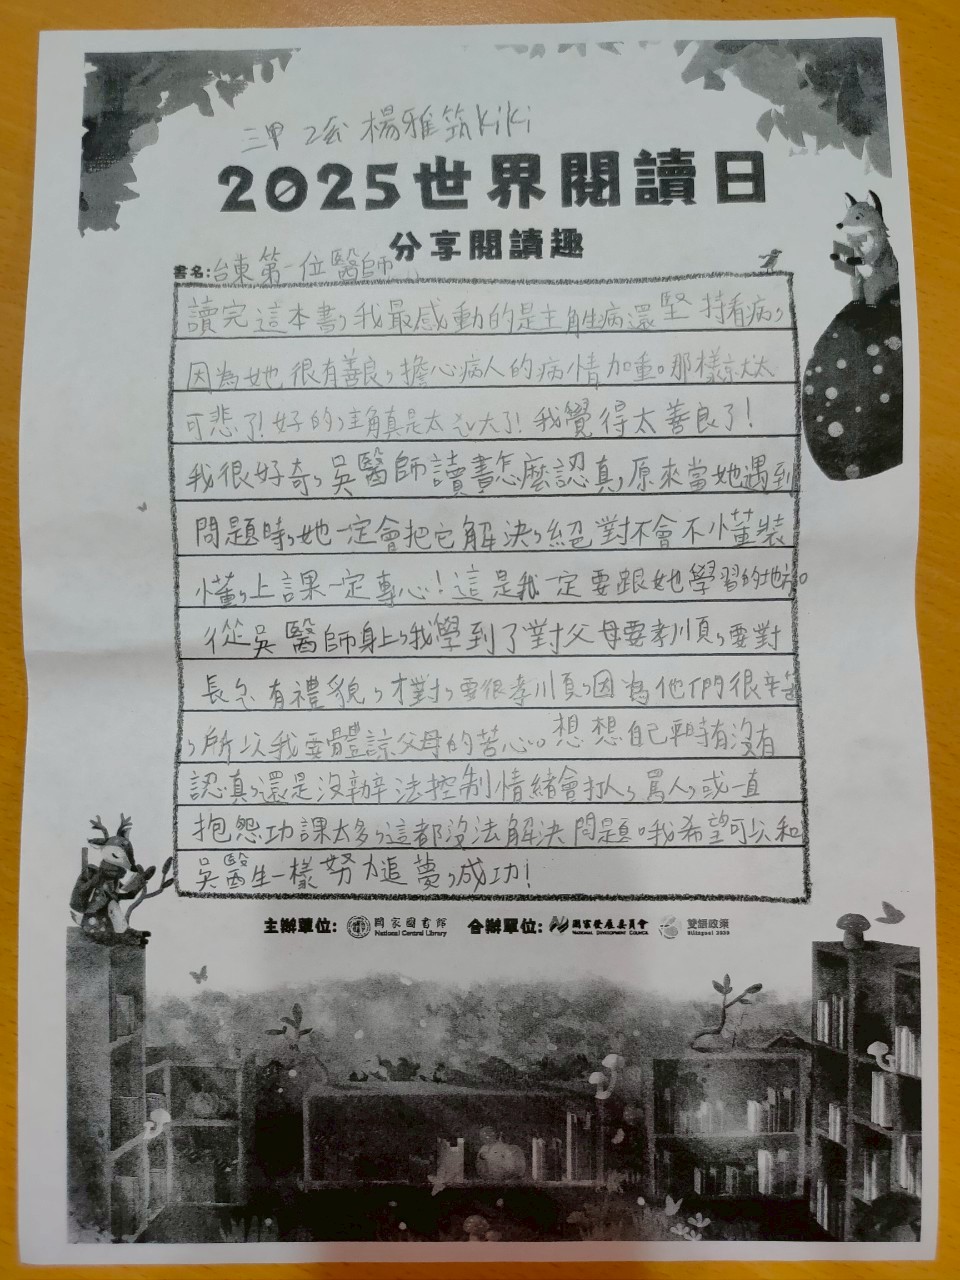 三甲 2号 楊雅筑kiki
2025世界閱讀日
分享閱讀趣
書名:台東第一位醫師
讀完這本書，我最感動的是主角生病還堅持看病，
因為她很有善良，擔心病人的病情加重。那樣太
可悲了！好的主角真是太大了！我覺得太善良了！
我很好奇，吳醫師讀書怎麼認真，原來當她遇到
問題時，她一定會把它解決，絕對不會不懂裝
懂，上課一定專心！這是我一定要跟她學習的地方。
從吳醫師身上，我學到了對父母要孝順，要對
長有禮貌，才對，要很孝順，因為他們很辛苦
，所以我要體諒父母的苦心。想想自己平時有沒有
認真，還是沒辦法控制情緒會打人，罵人，或一直
抱怨功課太多，這都沒法解決問題。我希望可以和
吳醫生一樣努力追夢，成功！
主辦單位: 國家圖書館 National Central Library 合辦單位: 國家發展委員會 NATIONAL DEVELOPMENT COUNCIL 雙語政策 Bilingual 2030